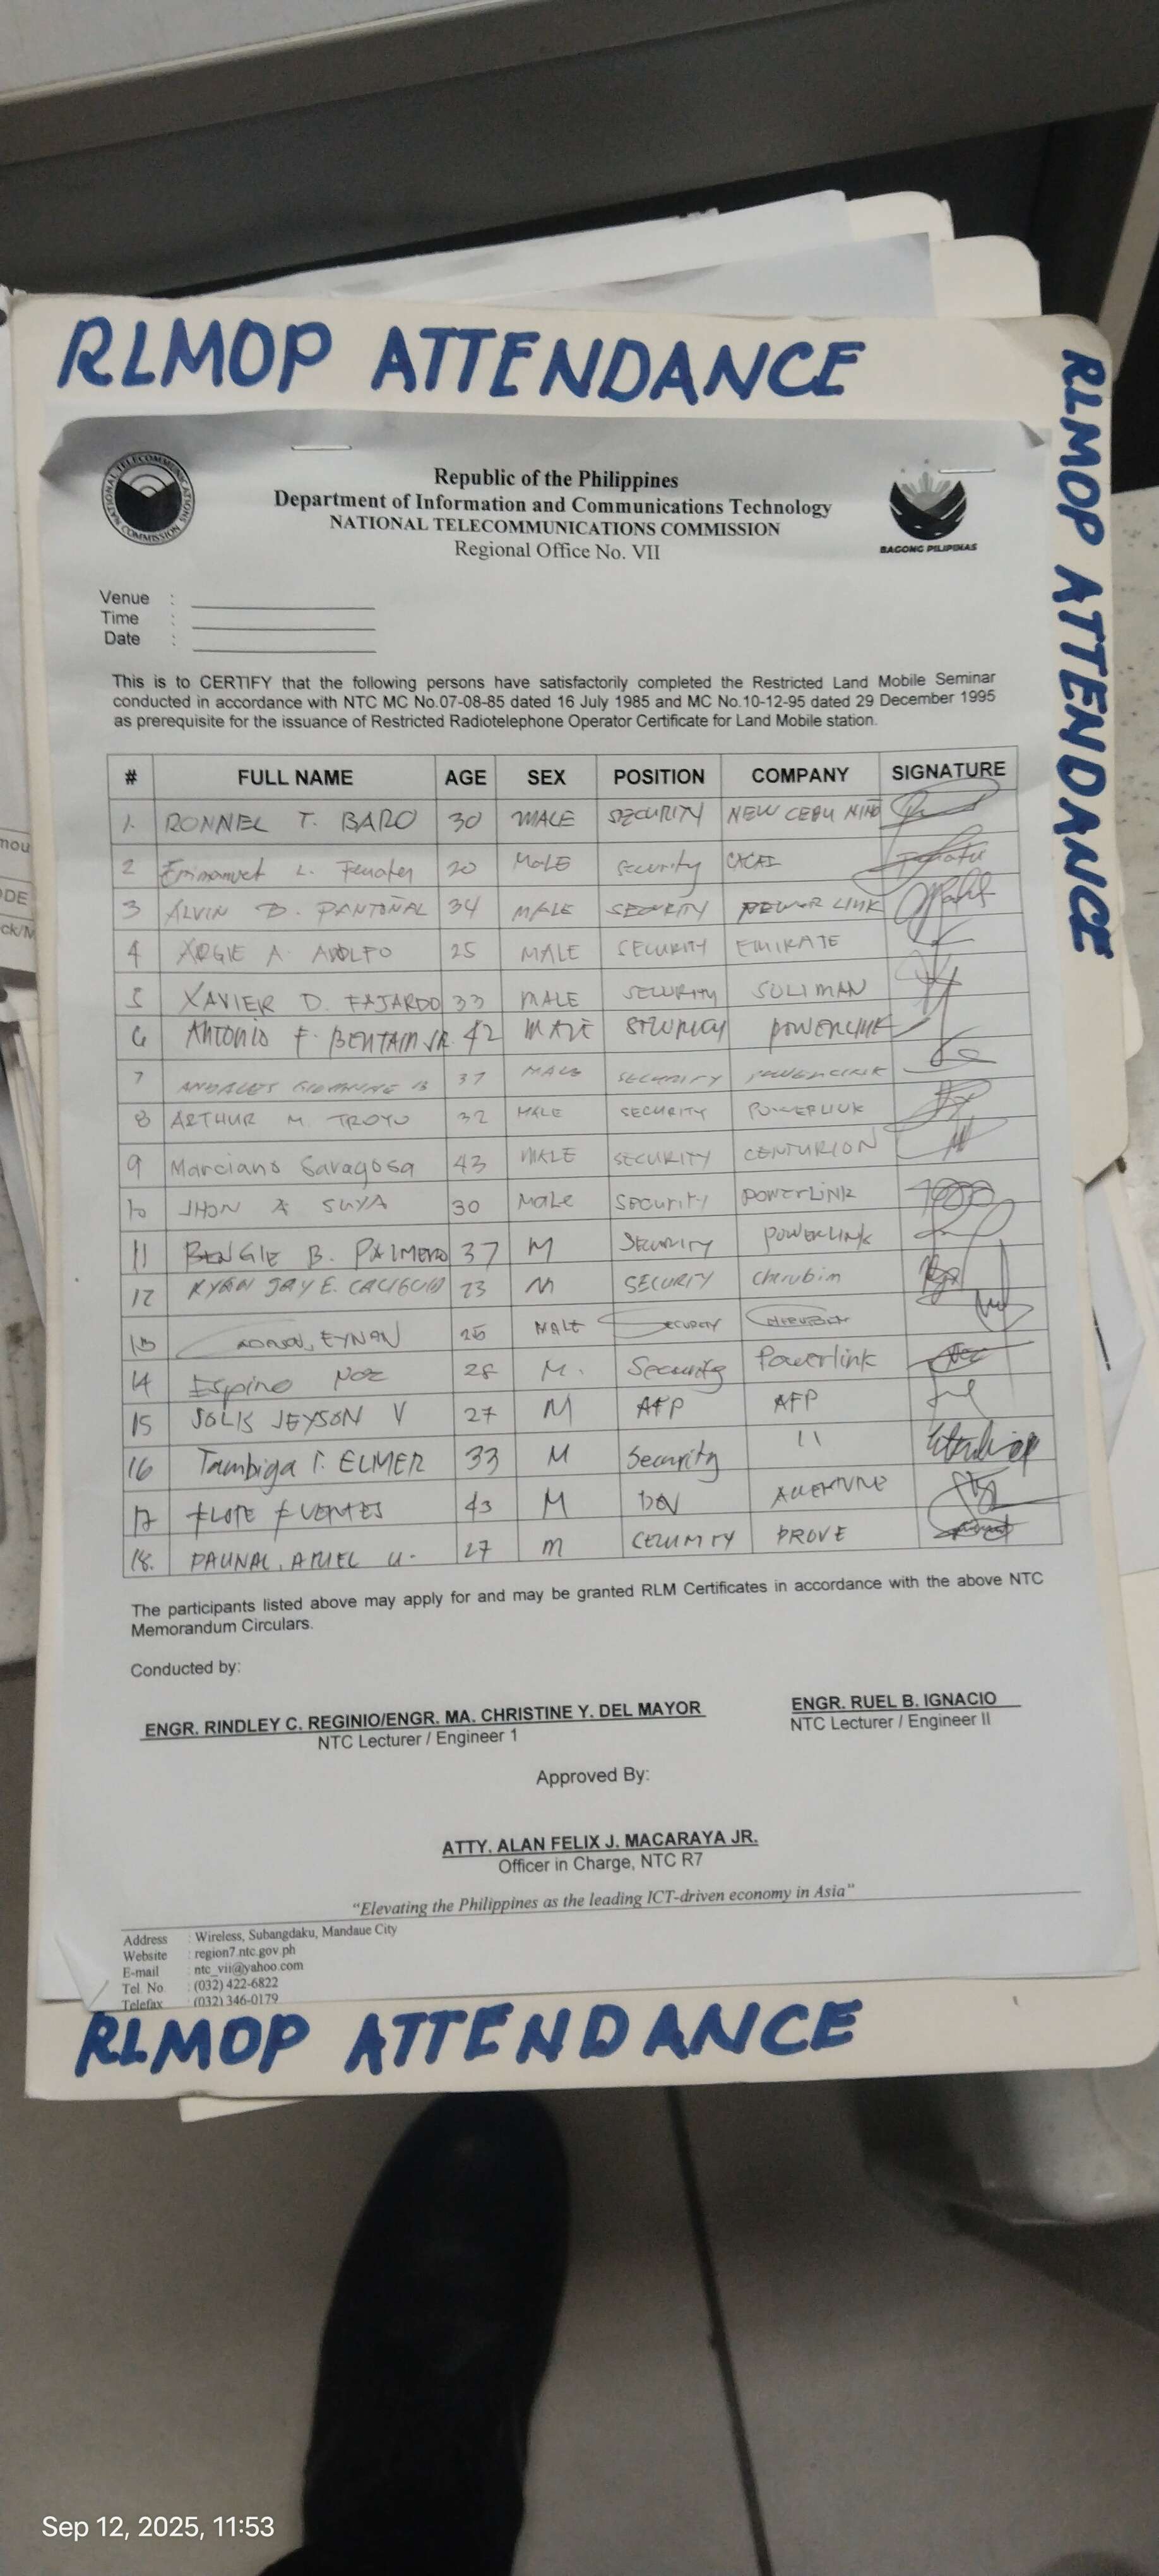 RLMOP ATTENDANCE
RLMOP ATTENDANCE
NATIONAL TELECOMMUNICATIONS COMMISSION
Republic of the Philippines
Department of Information and Communications Technology
NATIONAL TELECOMMUNICATIONS COMMISSION
Regional Office No. VII
BAGONG PILIPINAS
Venue :
Time :
Date :
This is to CERTIFY that the following persons have satisfactorily completed the Restricted Land Mobile Seminar
conducted in accordance with NTC MC No.07-08-85 dated 16 July 1985 and MC No.10-12-95 dated 29 December 1995
as prerequisite for the issuance of Restricted Radiotelephone Operator Certificate for Land Mobile station.
# FULL NAME AGE SEX POSITION COMPANY SIGNATURE
1. RONNEL T. BARO 30 MALE SECURITY NEW CEBU
2 L. 20 MALE Security
3 ALVIN D. PANTOÑAL 34 MALE SECURITY LINK
4 ARGIE A. ADOLFO 25 MALE SECURITY EMIRATE
5 XAVIER D. FAJARDO 33 MALE SECURITY SULIMAN
6 ANTONIO F. JR. 42 MALE POWERLINK
7 37 MALE SECURITY
8 ARTHUR M. TROYO 32 MALE SECURITY POWERLINK
9 Marciano Saragosa 43 MALE SECURITY CENTURION
10 JHON A SUYA 30 Male Security POWERLINK
11 BENGIE B. PALMERO 37 M SECURITY POWERLINK
12 RYAN JAY E. 23 M SECURITY Cherubim
13 EYNAN MALE SECURITY
14 Espino Noz 28 M. Security Powerlink
15 SOLIS JEYSON V 27 M AFP AFP
16 Tambiga ELMER 33 M Security 11
17 43 M
18. 27 m PROVE
The participants listed above may apply for and may be granted RLM Certificates in accordance with the above NTC
Memorandum Circulars.
Conducted by:
ENGR. RINDLEY C. REGINIO/ENGR. MA. CHRISTINE Y. DEL MAYOR
NTC Lecturer / Engineer 1
ENGR. RUEL B. IGNACIO
NTC Lecturer / Engineer II
Approved By:
ATTY. ALAN FELIX J. MACARAYA JR.
Officer in Charge, NTC R7
“Elevating the Philippines as the leading ICT-driven economy in Asia”
Address : Wireless, Subangdaku, Mandaue City
Website : region7.ntc.gov.ph
E-mail : ntc_vii@yahoo.com
Tel. No : (032) 422-6822
Telefax : (032) 346-0179
RLMOP ATTENDANCE
Sep 12, 2025, 11:53